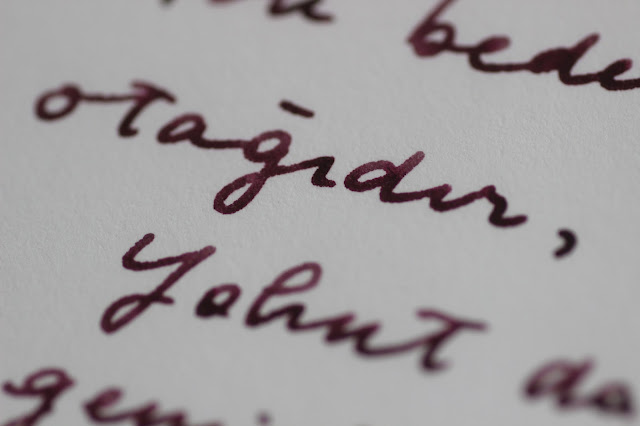 bede
otağıdır,
Yahut da